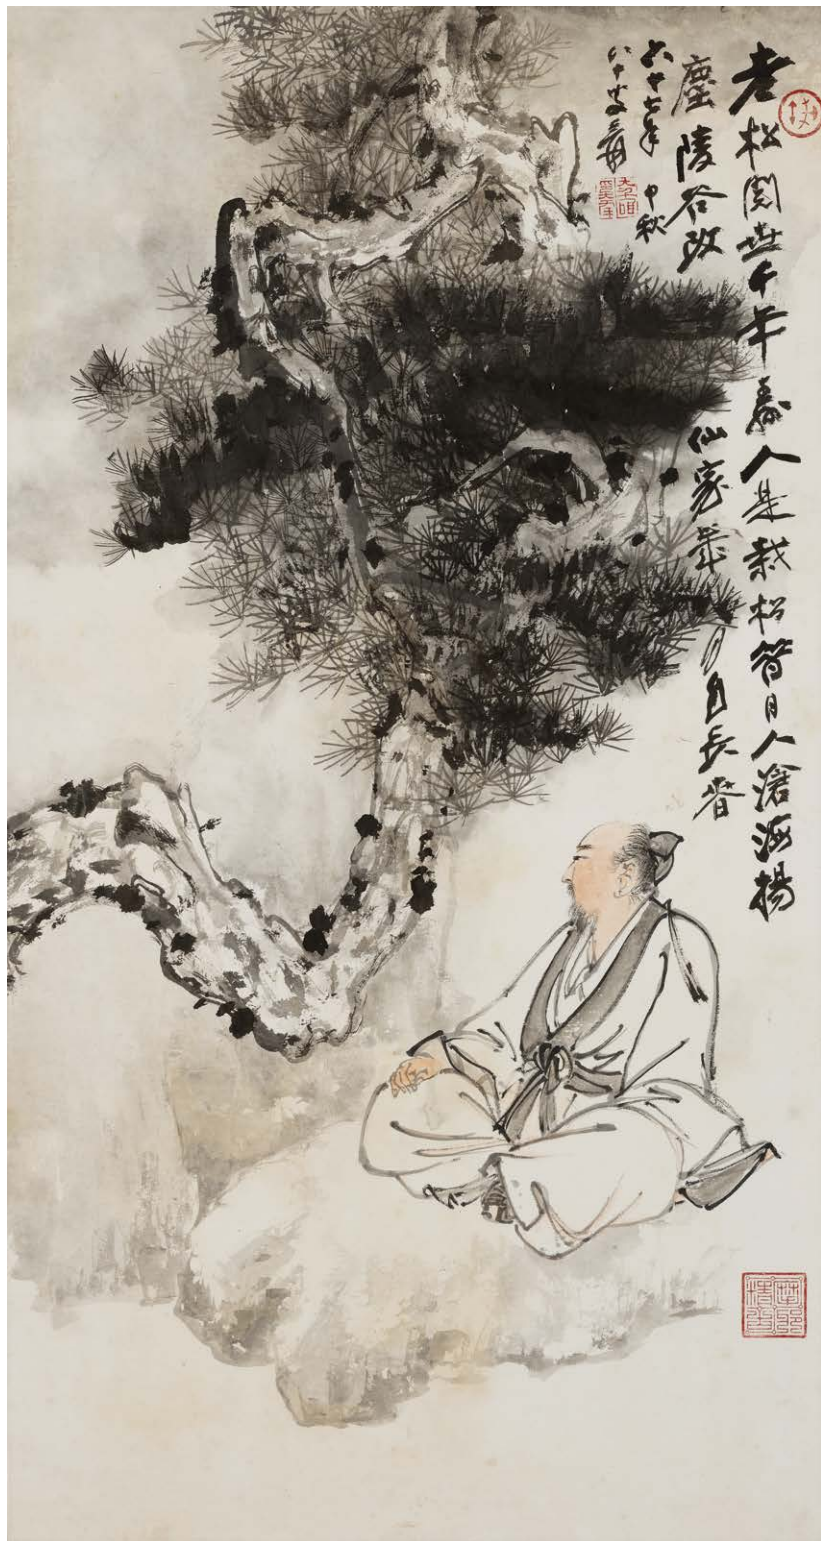 老松閱世千年壽人是栽松日人滄海揚
塵陵谷改仙家歲月自長春
六十七年中秋
八十叟爰
摩耶精舍